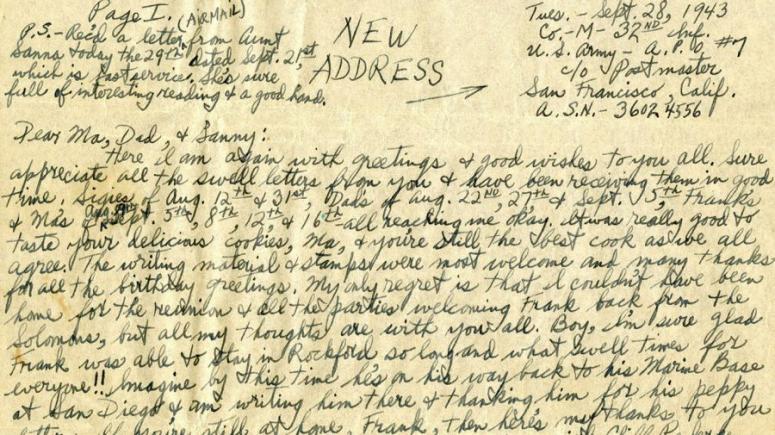 Page I. (AIRMAIL)
P.S.-Rec'd a letter from Aunt
Sanna today the 29th, dated Sept. 21st
which is fast service. She's sure
full of interesting reading & a good hand.
NEW
ADDRESS
Tues. - Sept. 28, 1943
Co.-M- 32ND Inf.
U.S. Army - A.P.O. #7
c/o Postmaster
San Francisco, Calif.
A.S.N.- 36024556
Dear Ma, Dad, & Sanny:
Here I am again with greetings & good wishes to you all. Sure
appreciate all the swell letters from you & have been receiving them in good
time. of Aug. 12th & 31st, Dads of Aug. 22ND, 27th & Sept. 5th, Franks
& Ma's Sept. 5th, 8th, 12th, & 16th-all reaching me okay. It was really good to
taste your delicious cookies, Ma, & you're still the best cook as we all
agree. The writing material & stamps were most welcome and many thanks
for all the birthday greetings. My only regret is that I couldn't have been
home for the reunion & all the parties welcoming Frank back from the
Solomons, but all my thoughts are with you all. Boy, I'm sure glad
Frank was able to stay in Rockford so long and what swell times for
everyone!! Imagine by this time he's on his way back to his Marine Base
at San Diego & am writing him there & thanking him for his peppy
you're still at home, Frank, then here's my thanks to you